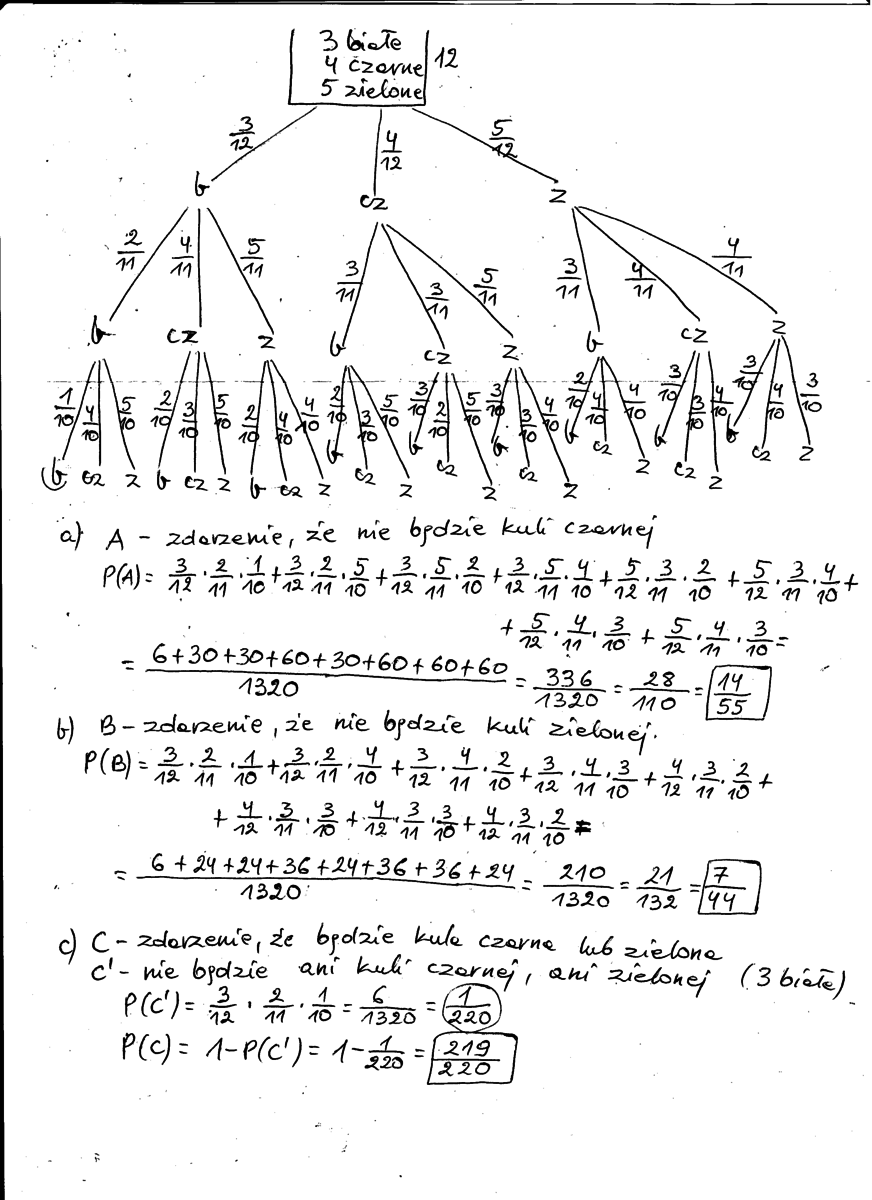 3 białe
4 czarne 12
5 zielone
3/12 4/12 5/12
b cz z
2/11 4/11 5/11 3/11 3/11 5/11 3/11 4/11 4/11
b cz z b cz z b cz z
1/10 4/10 5/10 2/10 3/10 5/10 2/10 4/10 4/10 2/10 3/10 5/10 3/10 2/10 5/10 3/10 3/10 4/10 2/10 4/10 4/10 3/10 3/10 4/10 3/10 4/10 3/10
b cz z b cz z b cz z b cz z b cz z b cz z b cz z b cz z b cz z
a) A - zdarzenie, że nie będzie kuli czarnej
P(A) = 3/12 · 2/11 · 1/10 + 3/12 · 2/11 · 5/10 + 3/12 · 5/11 · 2/10 + 3/12 · 5/11 · 4/10 + 5/12 · 3/11 · 2/10 + 5/12 · 3/11 · 4/10 +
+ 5/12 · 4/11 · 3/10 + 5/12 · 4/11 · 3/10 =
= 6+30+30+60+30+60+60+60/1320 = 336/1320 = 28/110 = 14/55
b) B - zdarzenie, że nie będzie kuli zielonej.
P(B) = 3/12 · 2/11 · 1/10 + 3/12 · 2/11 · 4/10 + 3/12 · 4/11 · 2/10 + 3/12 · 4/11 · 3/10 + 4/12 · 3/11 · 2/10 +
+ 4/12 · 3/11 · 3/10 + 4/12 · 3/11 · 3/10 + 4/12 · 3/11 · 2/10 =
= 6+24+24+36+24+36+36+24/1320 = 210/1320 = 21/132 = 7/44
c) C - zdarzenie, że będzie kula czarna lub zielona
C' - nie będzie ani kuli czarnej, ani zielonej (3 białe)
P(C') = 3/12 · 2/11 · 1/10 = 6/1320 = 1/220
P(C) = 1 - P(C') = 1 - 1/220 = 219/220